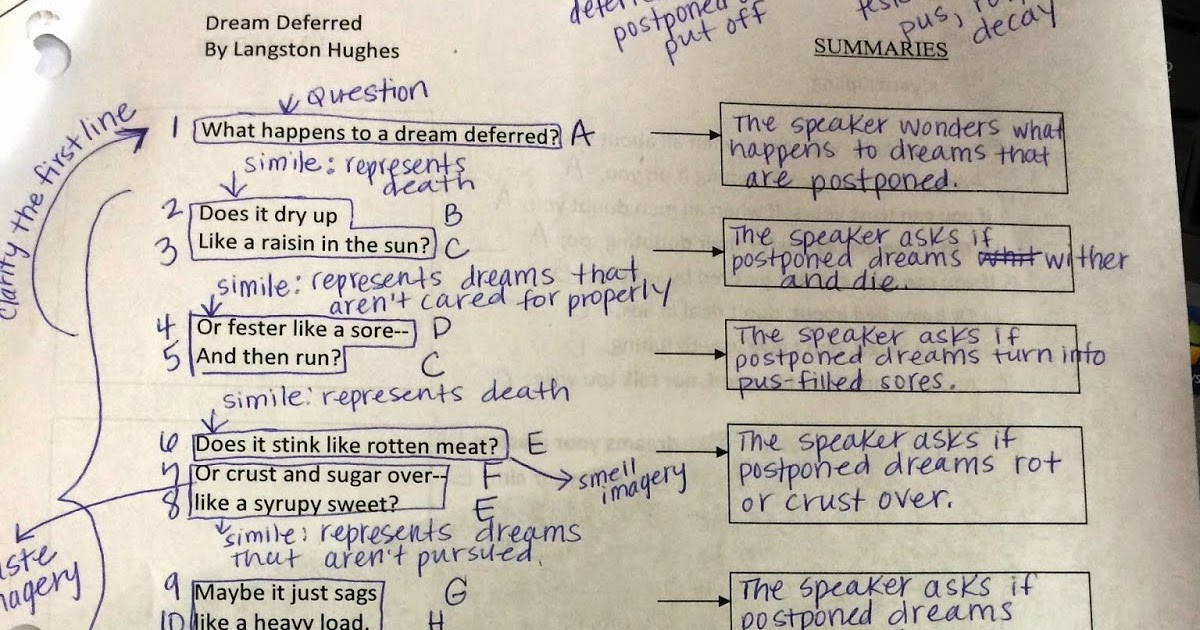 Dream Deferred
By Langston Hughes
postponed
put off
pus,
decay
SUMMARIES
Question
Clarify the first line
1 What happens to a dream deferred? A
The speaker wonders what
happens to dreams that
are postponed.
simile: represents
death
2 Does it dry up B
3 Like a raisin in the sun? C
The speaker asks if
postponed dreams wither
and die.
simile: represents dreams that
aren't cared for properly
4 Or fester like a sore-- D
5 And then run? C
The speaker asks if
postponed dreams turn into
pus-filled sores.
simile: represents death
6 Does it stink like rotten meat? E
smell
imagery
7 Or crust and sugar over-- F
8 like a syrupy sweet? E
The speaker asks if
postponed dreams rot
or crust over.
simile: represents dreams
that aren't pursued.
9 Maybe it just sags G
10 like a heavy load. H
The speaker asks if
postponed dreams